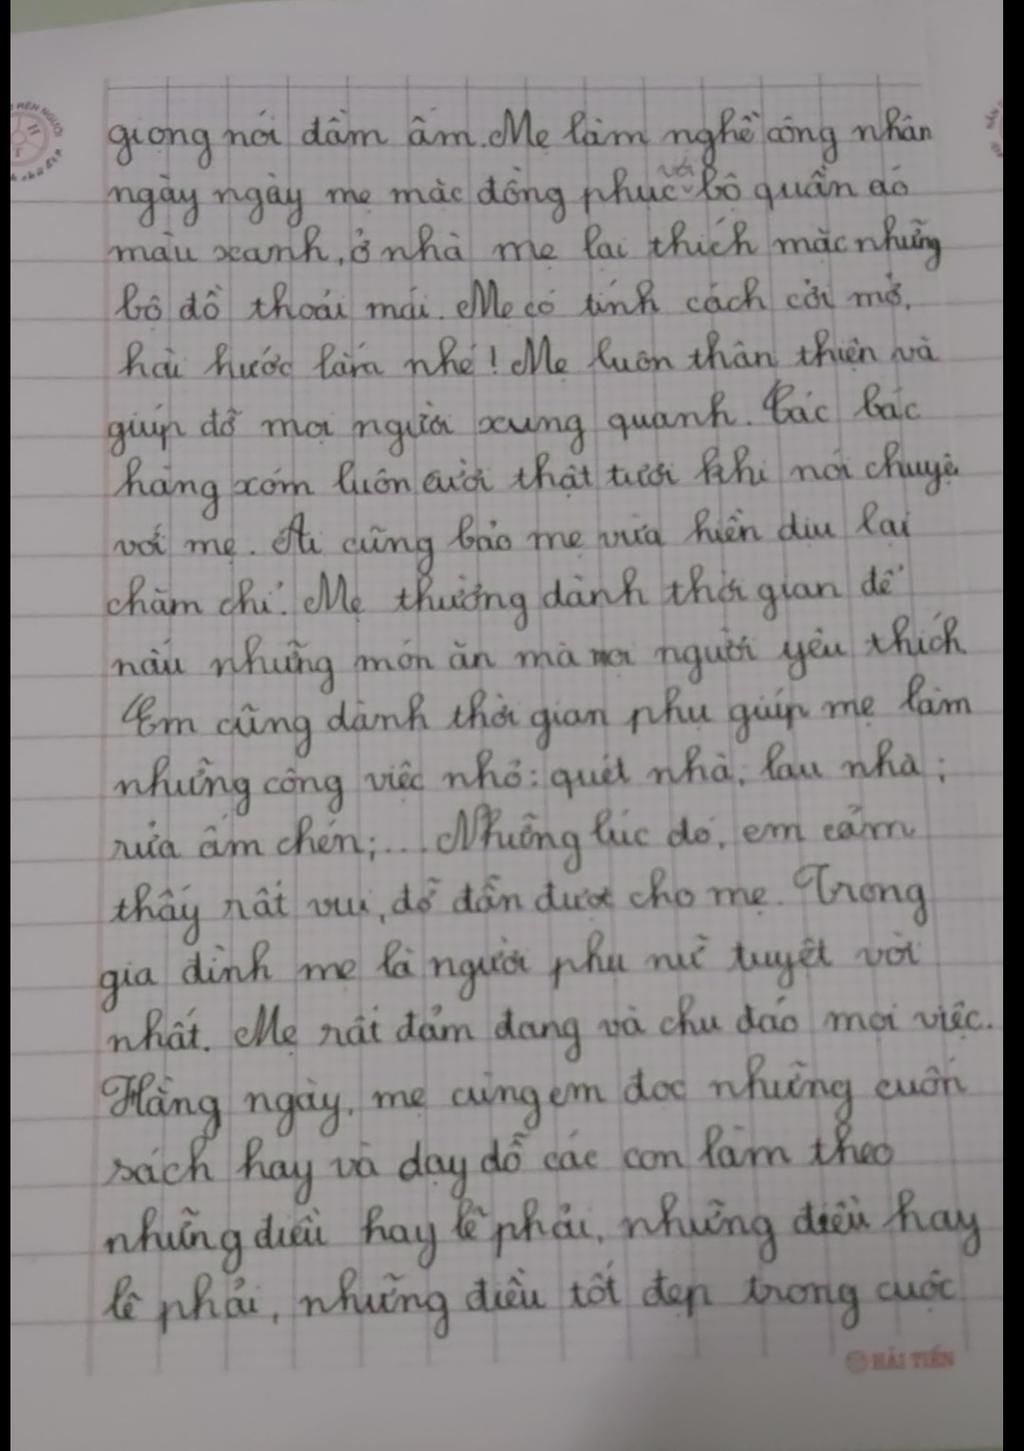 giọng nói đầm ấm. Mẹ làm nghề công nhân
ngày ngày mẹ mặc đồng phục với bộ quần áo
màu xanh, ở nhà mẹ lại thích mặc những
bộ đồ thoải mái. Mẹ có tính cách cởi mở,
hài hước lắm nhé! Mẹ luôn thân thiện và
giúp đỡ mọi người xung quanh. Các bác
hàng xóm luôn cười thật tươi khi nói chuyệ
với mẹ. Ai cũng bảo mẹ vừa hiền dịu lại
chăm chỉ. Mẹ thường dành thời gian để
nấu những món ăn mà mọi người yêu thích
Em cũng dành thời gian phụ giúp mẹ làm
những công việc nhỏ: quét nhà; lau nhà;
rửa ấm chén;... Những lúc đó, em cảm
thấy rất vui, đỡ đần được cho mẹ. Trong
gia đình mẹ là người phụ nữ tuyệt vời
nhất. Mẹ rất đảm đang và chu đáo mọi việc.
Hằng ngày, mẹ cùng em đọc những cuốn
sách hay và dạy dỗ các con làm theo
những điều hay lẽ phải, những điều hay
lẽ phải, những điều tốt đẹp trong cuộc
HẢI TIẾN